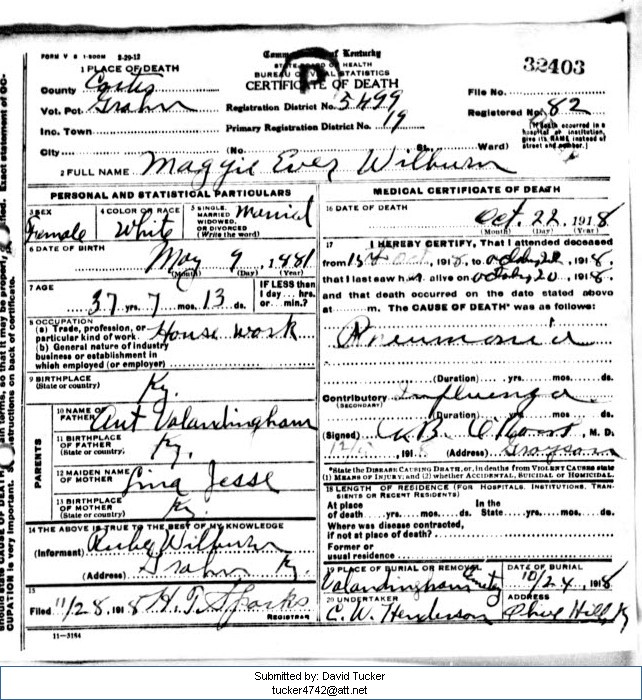 FORM V S 1-500M 5-29-12
Commonwealth of Kentucky
STATE BOARD OF HEALTH
BUREAU OF VITAL STATISTICS
CERTIFICATE OF DEATH
P
32403
1 PLACE OF DEATH
County Carter
Vot. Pct. Grahn
Inc. Town
City (No. St. Ward)
Registration District No. 3499
Primary Registration District No. 19
File No.
Registered No. 82
[If death occurred in a hospital or institution, give its NAME instead of street and number.]
2 FULL NAME Maggie Ever Wilburn
PERSONAL AND STATISTICAL PARTICULARS
3 SEX Female
4 COLOR OR RACE White
5 SINGLE, MARRIED, WIDOWED, OR DIVORCED (Write the word) Married
6 DATE OF BIRTH May 9, 1881
(Month) (Day) (Year)
7 AGE 37 yrs. 7 mos. 13 ds.
IF LESS than 1 day... hrs. or... min.?
8 OCCUPATION
(a) Trade, profession, or particular kind of work House work
(b) General nature of industry business or establishment in which employed (or employer)
9 BIRTHPLACE (State or country) Ky.
PARENTS
10 NAME OF FATHER Ant Valandingham
11 BIRTHPLACE OF FATHER (State or country) Ky.
12 MAIDEN NAME OF MOTHER Lina Jesse
13 BIRTHPLACE OF MOTHER (State or country) Ky
14 THE ABOVE IS TRUE TO THE BEST OF MY KNOWLEDGE
(Informant) Wilburn
(Address) Grahn Ky
15
Filed 11/28, 1918 H. T. Sparks
REGISTRAR
11-3184
MEDICAL CERTIFICATE OF DEATH
16 DATE OF DEATH
Oct. 22, 1918
(Month) (Day) (Year)
17 I HEREBY CERTIFY, That I attended deceased
from 1918, to 1918,
that I last saw h alive on 20, 1918.
and that death occurred on the date stated above
at m. The CAUSE OF DEATH* was as follows:
Pneumonia
(Duration) yrs. mos. ds.
Contributory Influenza
(SECONDARY)
(Duration) yrs. mos. ds.
(Signed) M. D.
191 (Address) Grayson
*State the DISEASE CAUSING DEATH, or, in deaths from VIOLENT CAUSES state
(1) MEANS OF INJURY; and (2) whether ACCIDENTAL, SUICIDAL or HOMICIDAL.
18 LENGTH OF RESIDENCE (FOR HOSPITALS, INSTITUTIONS, TRANSIENTS OR RECENT RESIDENTS)
At place of death yrs. mos. ds.
In the State yrs. mos. ds.
Where was disease contracted, if not at place of death?
Former or usual residence
19 PLACE OF BURIAL OR REMOVAL
Valandingham
DATE OF BURIAL
10/24, 1918
20 UNDERTAKER
C. W. Henderson
ADDRESS
Olive Hill, Ky
Submitted by: David Tucker
tucker4742@att.net